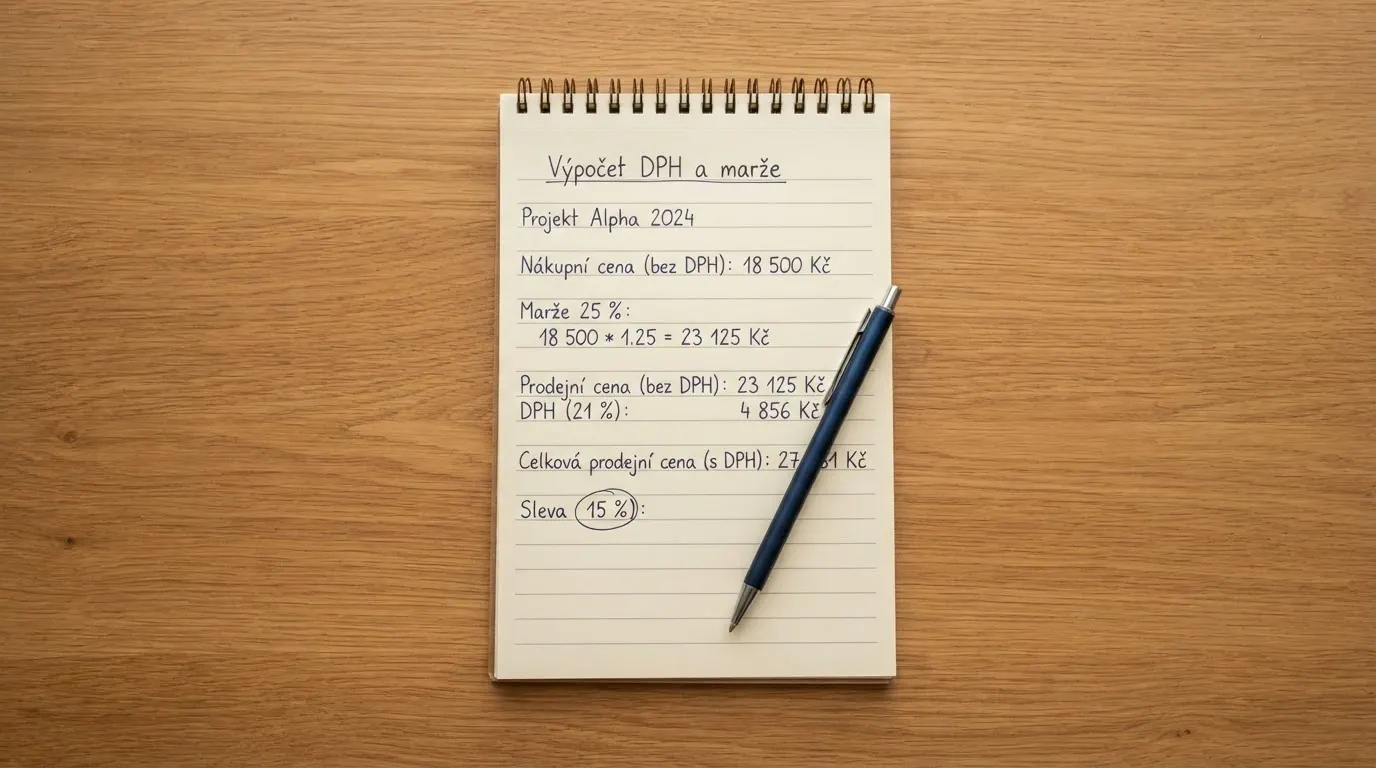 Výpočet DPH a marže
Projekt Alpha 2024
Nákupní cena (bez DPH): 18 500 Kč
Marže 25 %:
18 500 * 1.25 = 23 125 Kč
Prodejní cena (bez DPH): 23 125 Kč
DPH (21 %): 4 856 Kč
Celková prodejní cena (s DPH): Kč
Sleva (15 %):